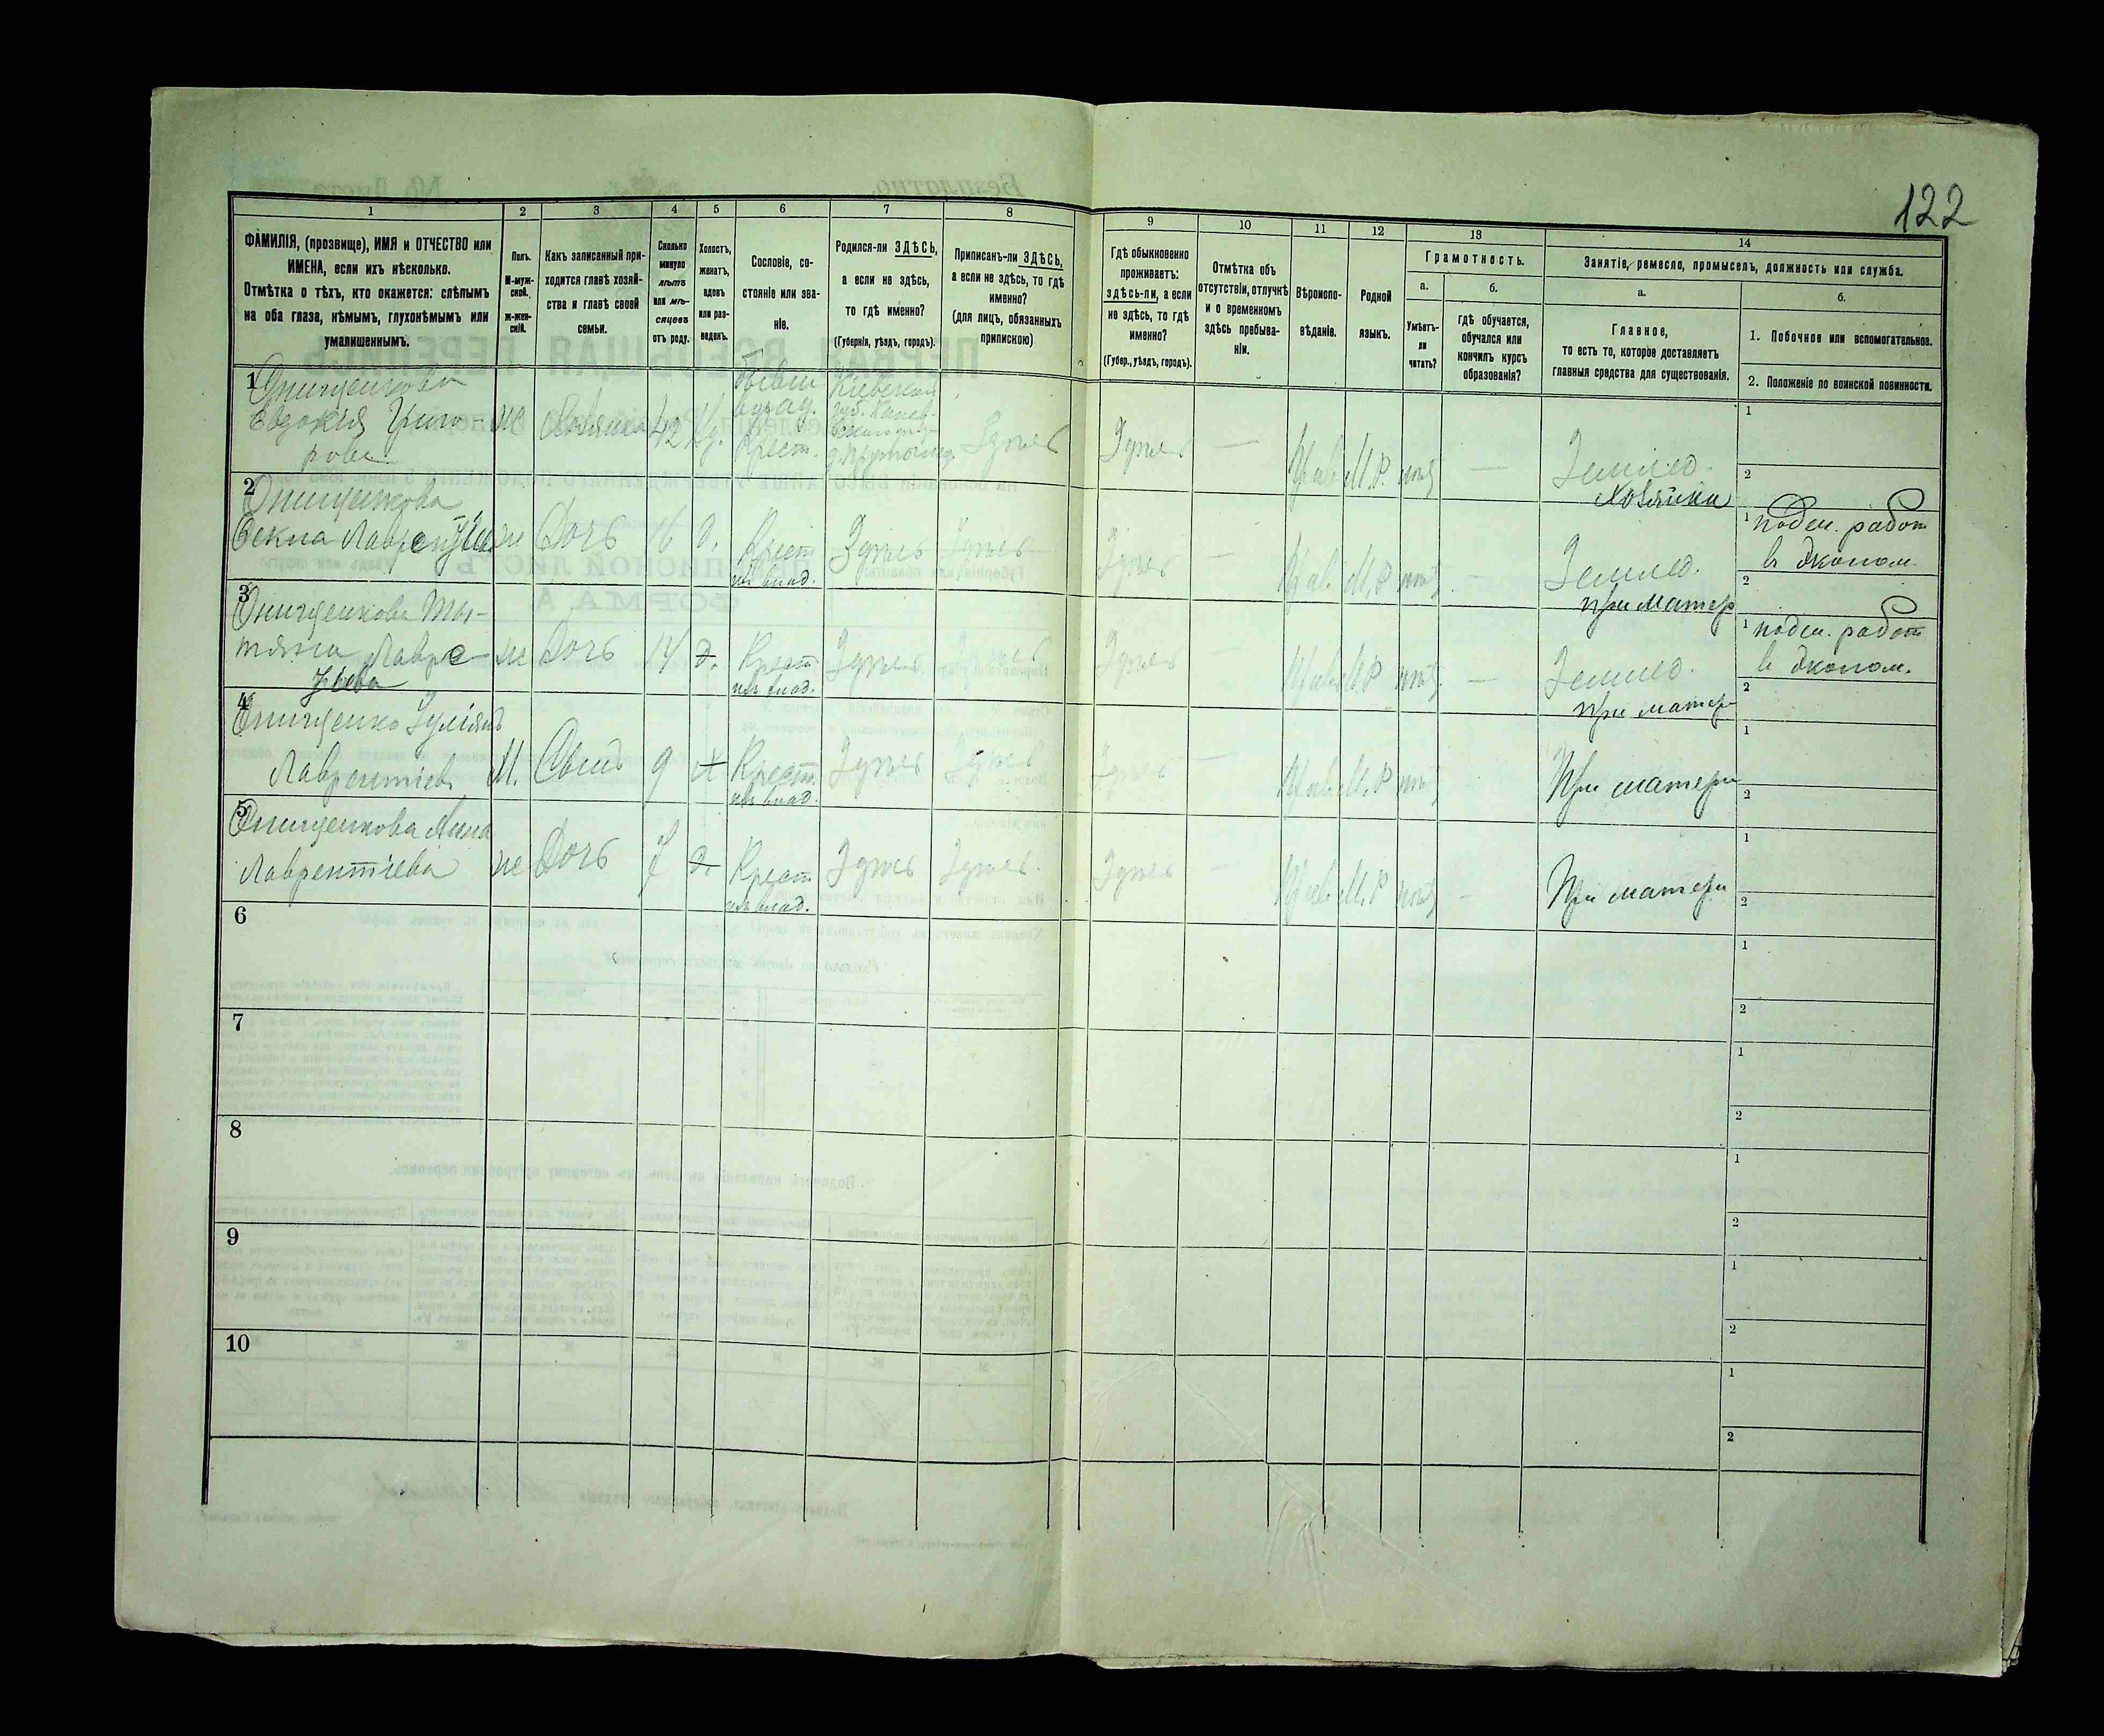 122
1 2 3 4 5 6 7 8 9 10 11 12 13 14
ФАМИЛІЯ, (прозвище), ИМЯ и ОТЧЕСТВО или
ИМЕНА, если ихъ нѣсколько.
Отмѣтка о тѣхъ, кто окажется: слѣпымъ
на оба глаза, нѣмымъ, глухонѣмымъ или
умалишеннымъ.
Полъ.
М-муж-
ской.
Ж-жен-
скій.
Какъ записанный при-
ходится главѣ хозяй-
ства и главѣ своей
семьи.
Сколько
минуло
лѣтъ
или мѣ-
сяцевъ
отъ роду.
Холостъ,
женатъ,
вдовъ
или раз-
веденъ.
Сословіе, со-
стояніе или зва-
ніе.
Родился-ли ЗДѢСЬ,
а если не здѣсь,
то гдѣ именно?
(Губернія, уѣздъ, городъ).
Приписанъ-ли ЗДѢСЬ,
а если не здѣсь, то гдѣ
именно?
(для лицъ, обязанныхъ
припискою)
Гдѣ обыкновенно
проживаетъ:
здѣсь-ли, а если
не здѣсь, то гдѣ
именно?
(Губер., уѣздъ, городъ).
Отмѣтка объ
отсутствіи, отлучкѣ
и о временномъ
здѣсь пребыва-
ніи.
Вѣроиспо-
вѣданіе.
Родной
языкъ.
Грамотность.
а.
Умѣетъ-
ли
читать?
б.
гдѣ обучается,
обучался или
кончилъ курсъ
образованія?
Занятіе, ремесло, промыселъ, должность или служба.
а.
Главное,
то есть то, которое доставляетъ
главныя средства для существованія.
б.
1. Побочное или вспомогательное.
2. Положеніе по воинской повинности.
1
Онищенкова
Евдокія Григо-
рова
ж
Хозяйка
42
Вд.
бывш
влад.
Крест.
Кіевской
губ. Канев-
Здѣсь
Здѣсь
—
Прав.
М.Р.
нѣтъ
—
Землед.
Хозяйка
1
2
2
Онищенкова
Ѳекла Лаврентіева
ж
Дочь
16
д.
Крест
изъ влад.
Здѣсь
Здѣсь
Здѣсь
—
Прав.
М.Р
нѣтъ
—
Землед.
при матер
1 поден. работ
въ эконом.
2
3
Онищенкова Тать-
тяна Лавре-
тьева
ж
Дочь
14
д.
Крест
изъ влад.
Здѣсь
Здѣсь
Здѣсь
—
Прав.
М.Р
нѣтъ
—
Землед.
при матер
1 поден. работ
въ эконом.
2
4
Онищенко Іуліянъ
Лаврентіевъ
М.
Сынъ
9
х
Крест.
изъ влад.
Здѣсь
Здѣсь
Здѣсь
—
Прав.
М.Р
нѣтъ
—
При матери
1
2
5
Онищенкова Анна
Лаврентіева
ж
Дочь
7
д
Крест
изъ влад.
Здѣсь
Здѣсь.
Здѣсь
—
Прав.
М.Р
нѣтъ
—
При матери
1
2
6
1
2
7
1
2
8
1
2
9
1
2
10
1
2